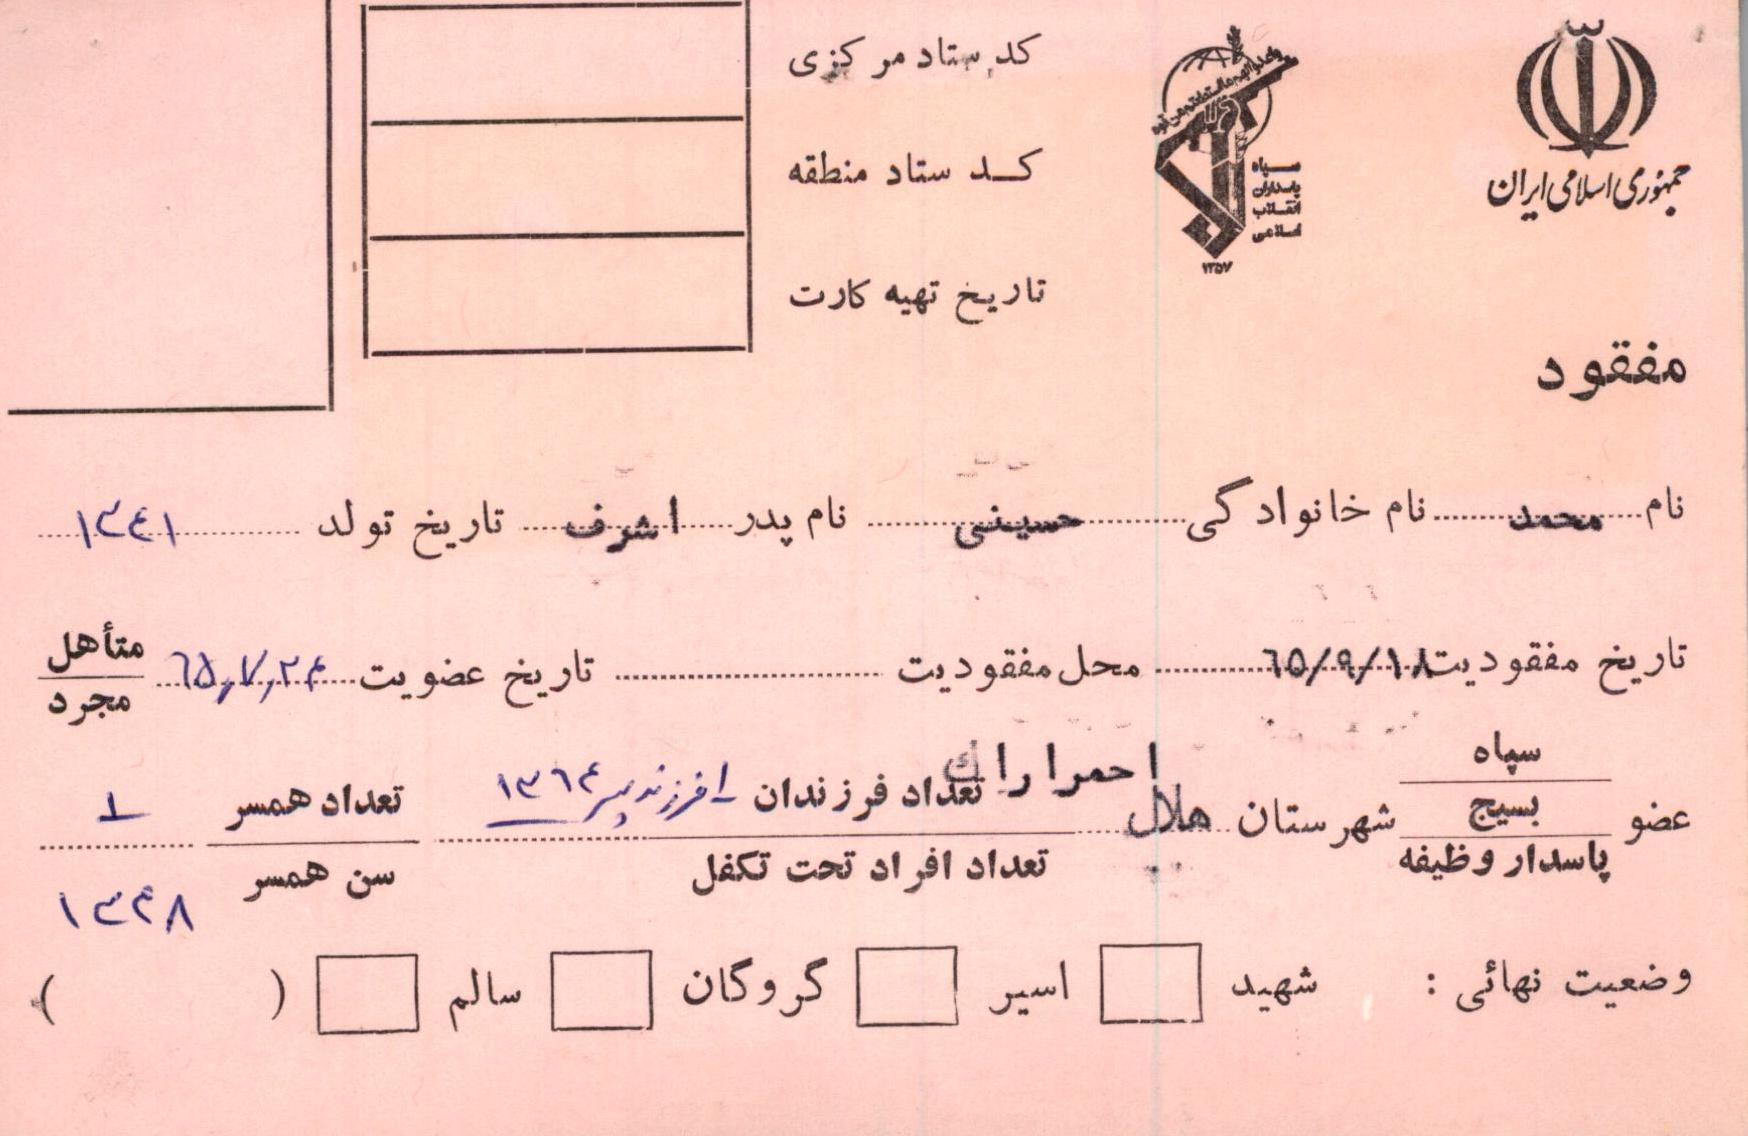 جمهوری اسلامی ایران
سپاه
پاسداران
انقلاب
اسلامی
۱۳۵۷
کد ستاد مرکزی
کد ستاد منطقه
تاریخ تهیه کارت
مفقود
نام محمد نام خانوادگی حسینی نام پدر اشرف تاریخ تولد ۱۳۴۱
تاریخ مفقودیت ۶۵/۹/۱۸ محل مفقودیت تاریخ عضویت ۶۵,۷,۲۴ متأهل
مجرد
عضو سپاه
بسیج
پاسدار وظیفه
شهرستان هلال احمر اراک
تعداد فرزندان ۱ فرزند پسر ۱۳۶۴
تعداد افراد تحت تکفل
تعداد همسر ۱
سن همسر ۱۳۴۸
وضعیت نهائی : شهید اسیر گروگان سالم ( )